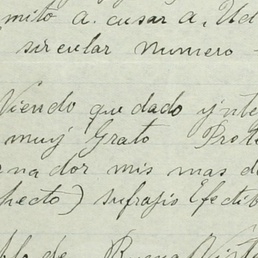 mito a. cusar a. Ud
sircular numero
Viendo que dado ynte
muy Grato Prote
na dor mis mas d
pecto) sufrajis Efecti
de Buena Vista